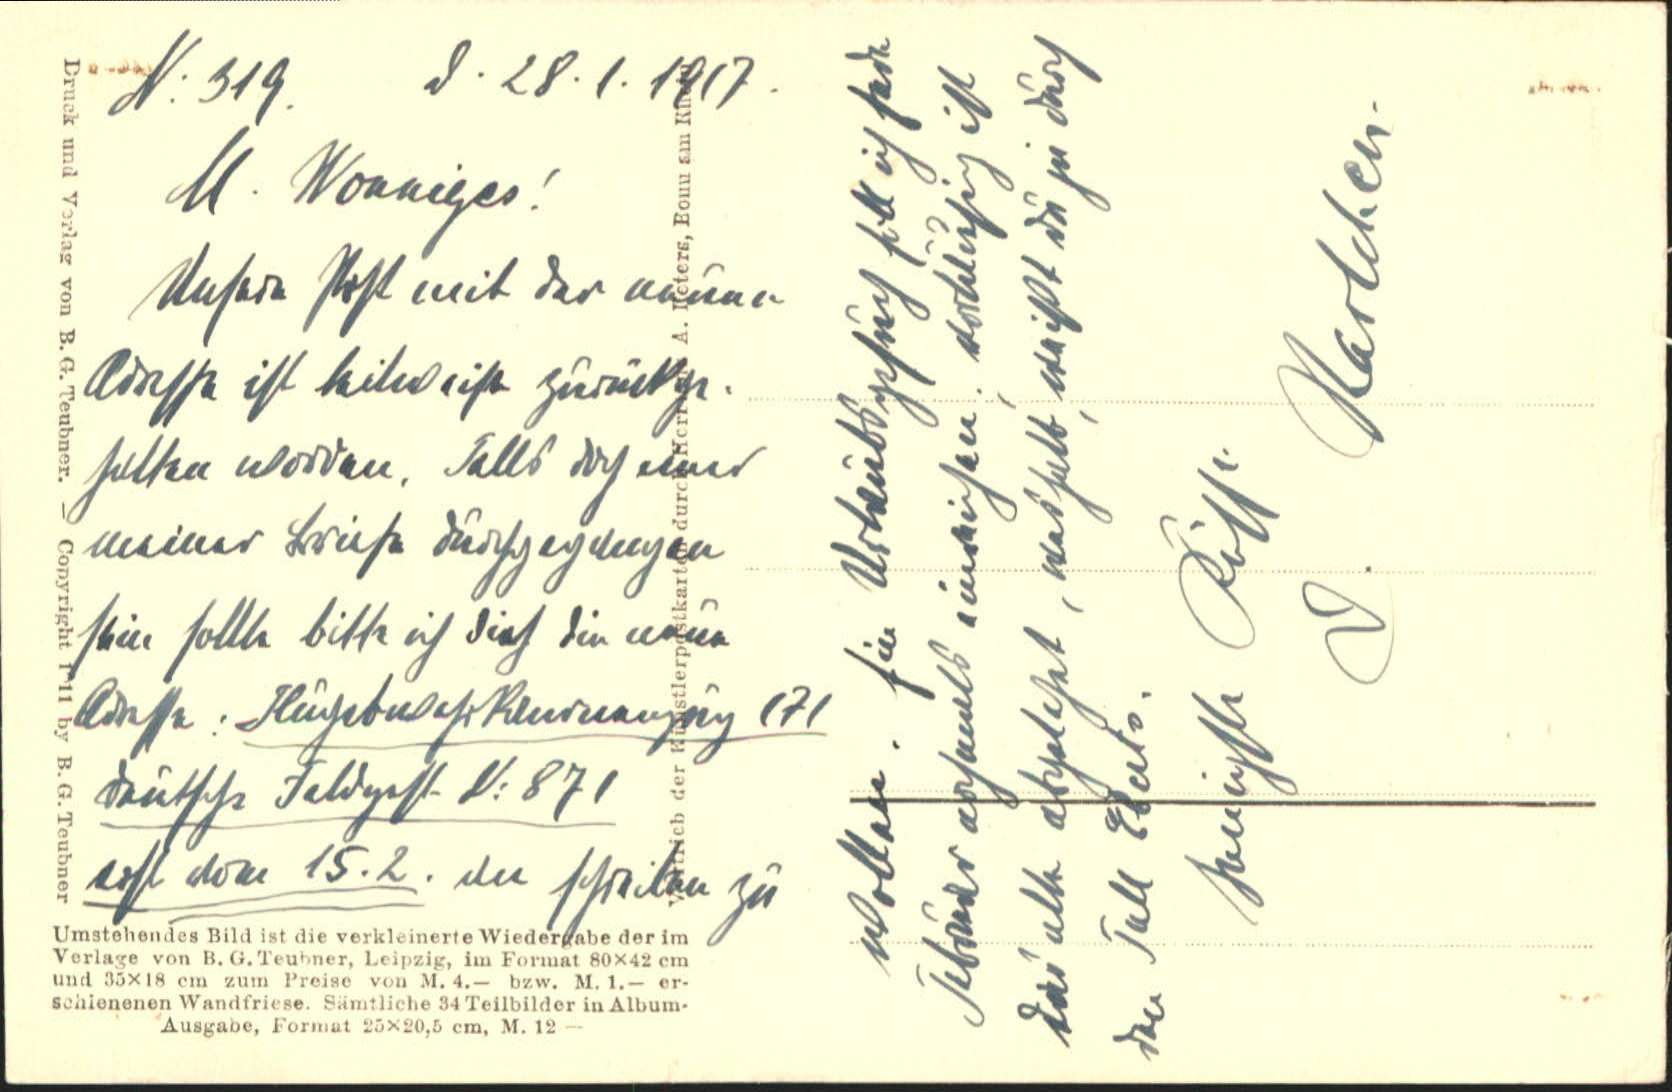 N: 319. d. 28.1.1917.
M. Wonniges!
Unsere Post mit der neuen
Adresse ist teilweise zurückge-
halten worden. Falls doch einer
meiner Briefe durchgegangen
sein sollte bitte ich dich die neue
Adresse: Flugabwehrkanonenzug 171
deutsche Feldpost N: 871
erst vom 15.2. an schreiben zu
wollen. Ein Urlaubsgesuch soll ich Ende
Februar nochmals einreichen. vorläufig ist
das alles abgelehnt, weshalb, weißt du ja durch
den Fall
Küsse
D. Karlchen.
Druck und Verlag von B. G. Teubner. — Copyright 1911 by B. G. Teubner
Vertrieb der Künstlerpostkarten durch Herrn A. Peters, Bonn am Rhein
Umstehendes Bild ist die verkleinerte Wiedergabe der im
Verlage von B. G. Teubner, Leipzig, im Format 80×42 cm
und 35×18 cm zum Preise von M. 4.— bzw. M. 1.— er-
schienenen Wandfriese. Sämtliche 34 Teilbilder in Album-
Ausgabe, Format 25×20,5 cm, M. 12 —